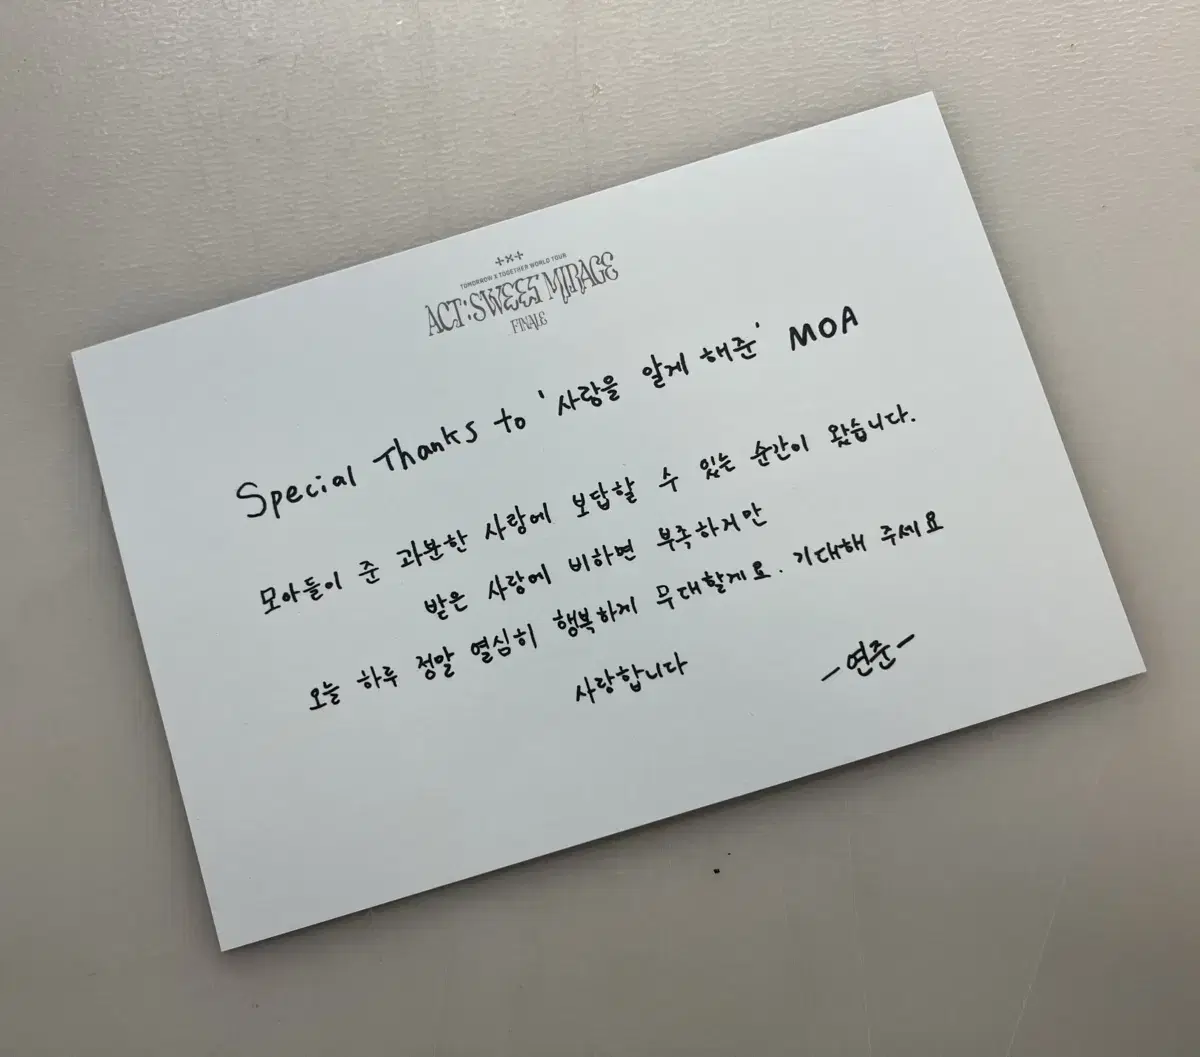 +×+
TOMORROW X TOGETHER WORLD TOUR
ACT:SWEET MIRAGE
FINALE
Special Thanks to '사랑을 알게 해준' MOA
모아들이 준 과분한 사랑에 보답할 수 있는 순간이 왔습니다.
받은 사랑에 비하면 부족하지만
오늘 하루 정말 열심히 행복하게 무대할게요. 기대해 주세요
사랑합니다
-연준-